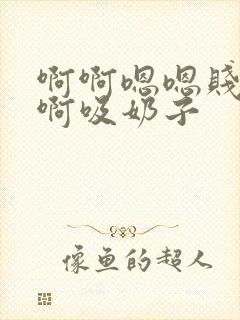 啊啊嗯嗯賎
啊吸奶子
像鱼的超人